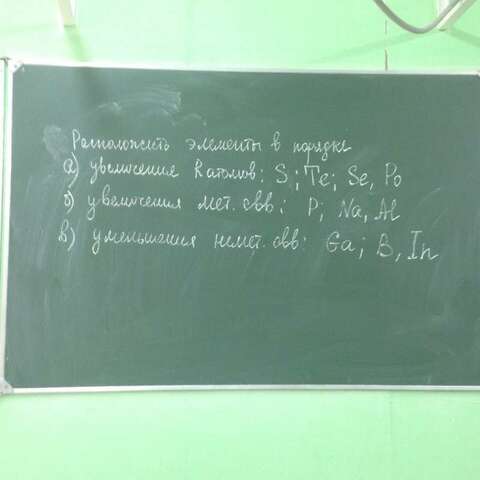 Расположить элементы в порядке
а) увеличения R атомов: S; Te; Se, Po
б) увеличения мет. свв: P; Na, Al
в) уменьшения немет. свв: Ga; B, In